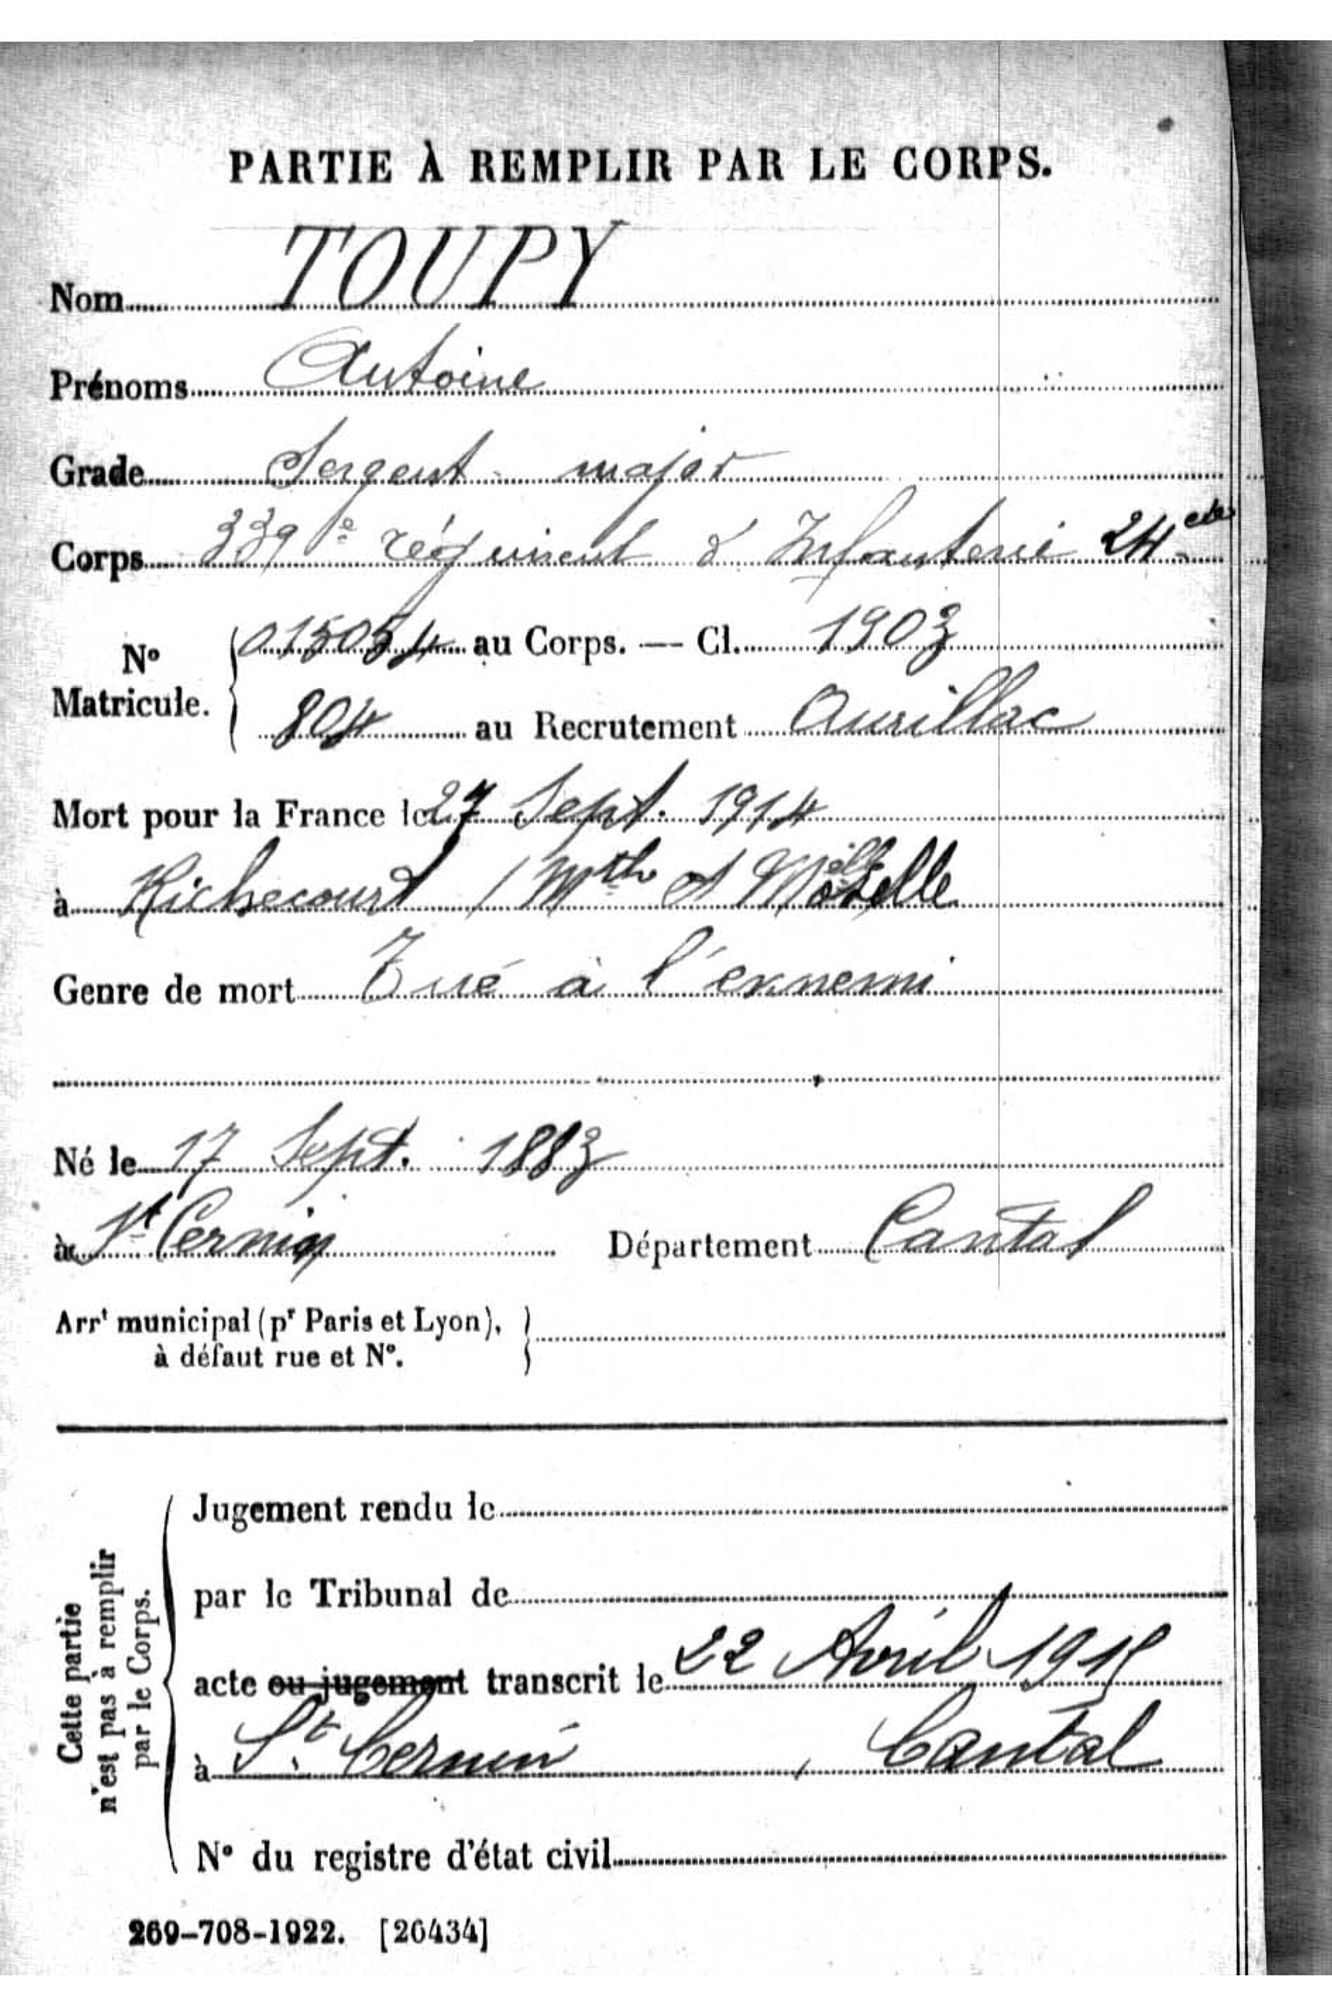 PARTIE À REMPLIR PAR LE CORPS.
Nom TOUPY
Prénoms Antoine
Grade Sergent major
Corps 339e régiment d'Infanterie 24e cie
No Matricule. 015054 au Corps. — Cl. 1903
804 au Recrutement Aurillac
Mort pour la France le 27 Sept. 1914
à Richecourt (Mthe et Moselle
Genre de mort Tué à l'ennemi
Né le 17 Sept. 1883
à St Cernin Département Cantal
Arrt municipal (pr Paris et Lyon),
à défaut rue et No.
Cette partie
n'est pas à remplir
par le Corps.
Jugement rendu le
par le Tribunal de
acte ou jugement transcrit le 22 Avril 1915
à St. Cernin, Cantal
No du registre d'état civil
269-708-1922. [26434]